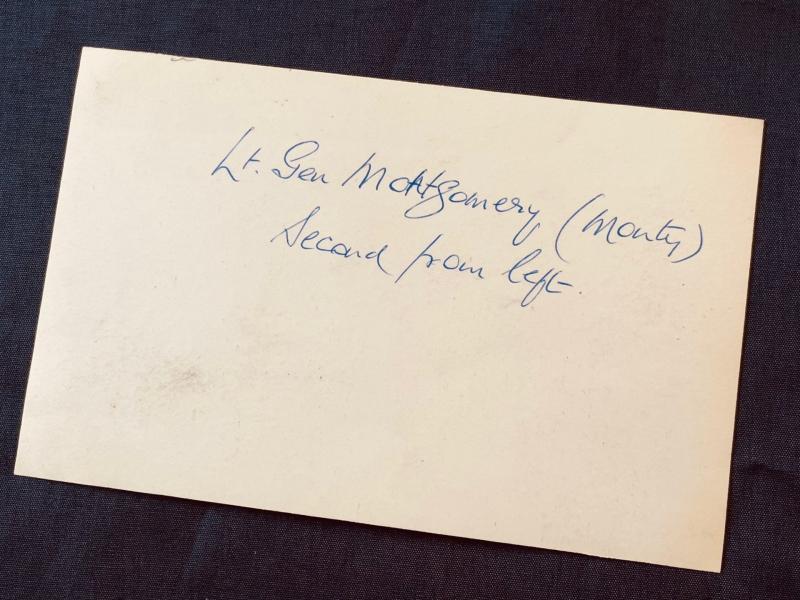 Lt. Gen Montgomery (Monty)
Second from left.